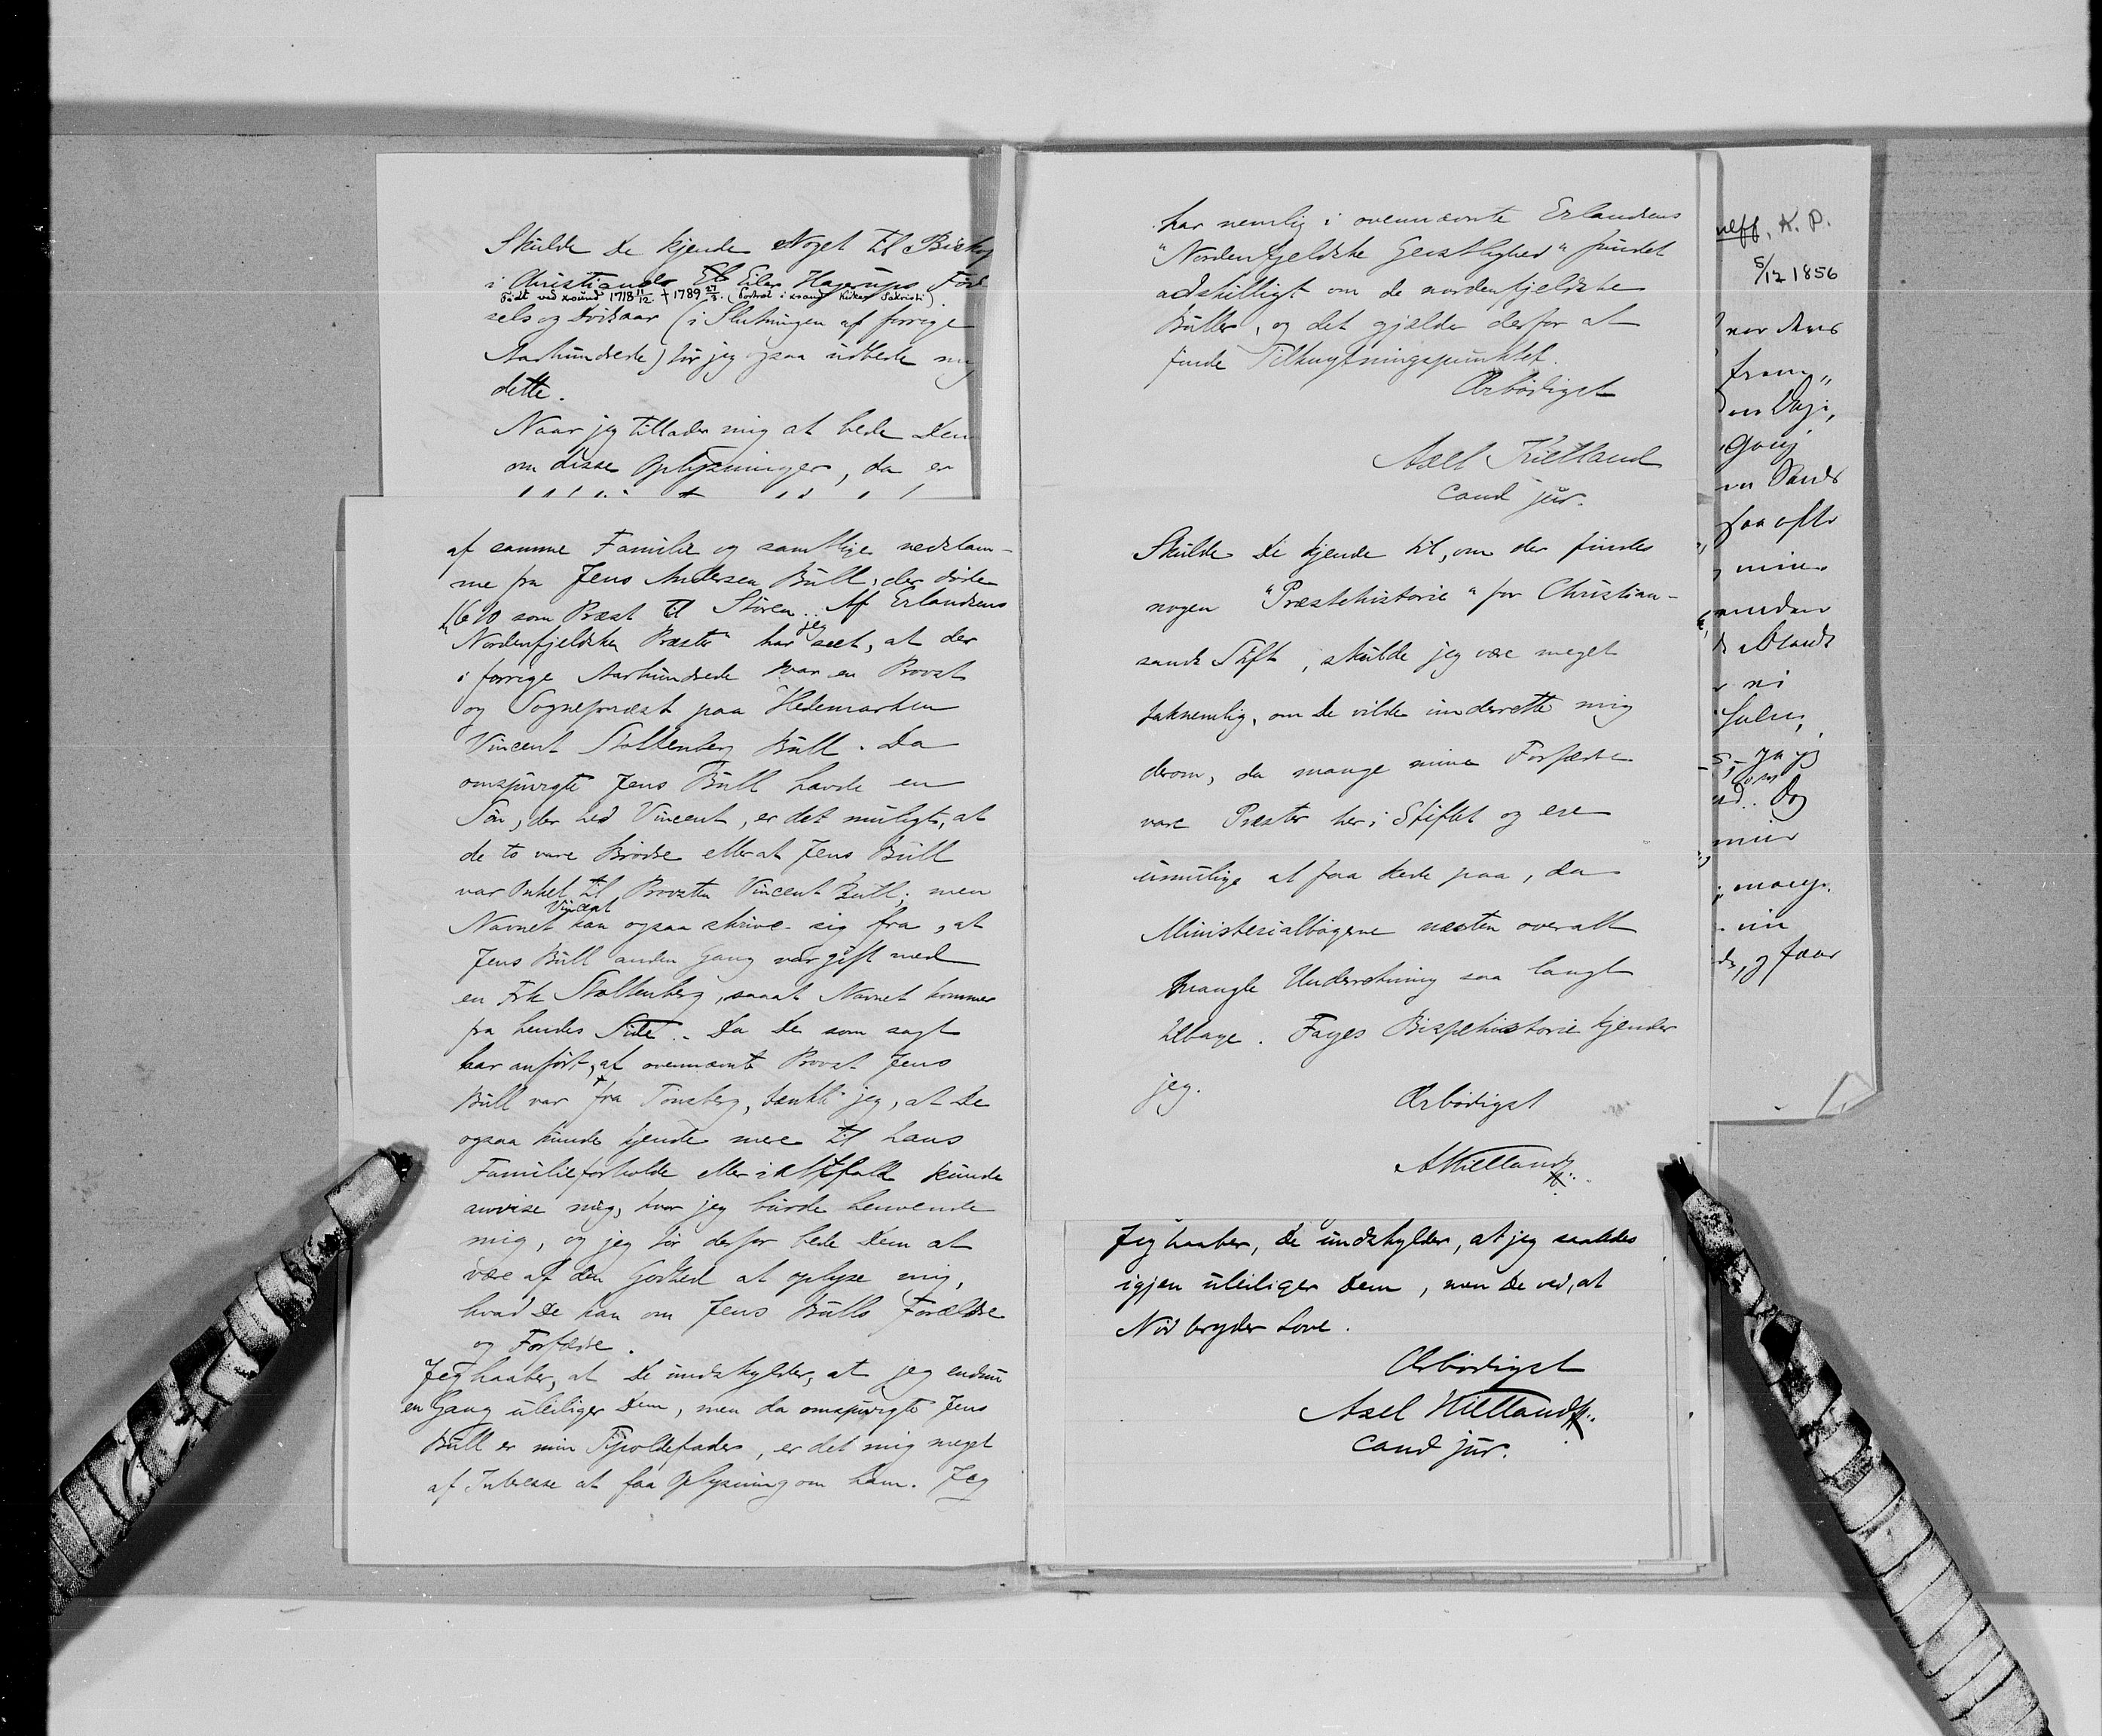 Skulde De kjende Noget til Biskop
i Christiands Eb Eiler Hagerups Föd
Födt ved xsund 1718 11/12 † 1789 27/5. (Portræt i xsand Kirkes Sakristi).
sels og Dödsaar (i Slutningen af forrige
Aarhundrede) tör jeg ogsaa udbede mig
dette.
Naar jeg tillader mig at bede Dem
om disse Oplysninger, da er
af samme Familie og samtlige nedstam-
me fra Jens Andersen Büll, der döde
1610 som Præst til Stören. Af Erlandsens
"Nordenfjeldske Præster" har jeg seet, at der
i forrige Aarhundrede var en Provst
og Sognepræst paa Hedemarken
Vincent Stoltenberg Büll. Da
omspurgte Jens Büll havde en
Sön, der hed Vincent, er det muligt, at
de to vare Brödre eller at Jens Büll
var Onkel til Provsten Vincent Büll; men
Navnet Vincent kan ogsaa skrive sig fra, at
Jens Büll anden Gang var gift med
en Frk Stoltenberg, saaat Navnet kommer
fra hendes Side. - Da De som sagt
har anfört, at ovennævnte Provst Jens
Büll var fra Tönsberg, tænkte jeg, at De
ogsaa kunde kjende mere til hans
Familieforholde eller i altfald kunde
anvise mig, hvor jeg burde henvende
mig, og jeg tör derfor bede Dem at
være af den Godhed at oplyse mig,
hvad De kan om Jens Bülls Forældre
og Forfædre.
Jeg haaber, at De undskylder, at jeg endnu
en Gang uleiliger Dem, men da omspurgte Jens
Büll er min Tipoldefader, er det mig meget
af Interesse at faa Oplysning om ham. Jeg
har nemlig i ovennævnte Erlandsens
"Nordenfjeldske Geistlighed" fundet
adskilligt om de nordenfjeldske
Büller, og det gjælder derfor at
finde Tilknytningspunktet.
Ærbödigst
Axel Kielland
cand jur.
Skulde De kjende til, om der findes
nogen "Præstehistorie" for Christian-
sands Stift, skulde jeg være meget
taknemlig, om De vilde underrette mig
derom, da mange mine Forfædre
vare Præster her i Stiftet og ere
umulige at faa Rede paa, da
Ministerialbögerne næsten overalt
mangle Underretning saa langt
tilbage. Fayes Bispehistorie kjender
jeg.
Ærbödigst
AKielland
Jeg haaber, De undskylder, at jeg saaledes
igjen uleiliger Dem, men De ved, at
Nöd bryder Love.
Ærbödigst
Axel Kielland
cand jur.
K. P.
5/12 1856
frem,,
Gang
saa ofte
min
ni
Ja jeg
Dog
mange
og faar